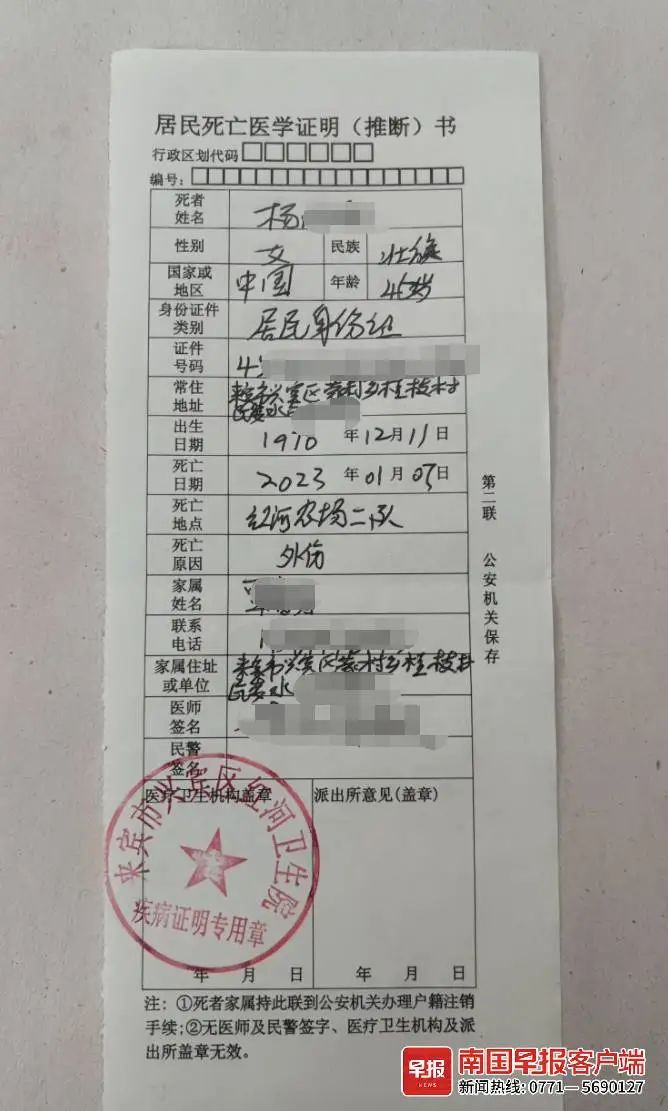 居民死亡医学证明（推断）书
行政区划代码□□□□□□
编号：□□□□□□□□□□□□□□□□□
死者姓名 杨
性别 女 民族 壮族
国家或地区 中国 年龄 45岁
身份证件类别 居民身份证
证件号码 4
常住地址 来宾市兴宾区 乡桂枝村
出生日期 1970年12月11日
死亡日期 2023年01月05日
死亡地点 红河农场二队
死亡原因 外伤
家属姓名
联系电话 1
家属住址或单位 来宾市兴宾区 乡桂枝村
医师签名
民警签名
医疗卫生机构盖章 派出所意见(盖章)
来宾市兴宾区红河卫生院
疾病证明专用章
年 月 日 年 月 日
注：①死者家属持此联到公安机关办理户籍注销
手续;②无医师及民警签字、医疗卫生机构及派
出所盖章无效。
第二联 公安机关保存
早报
NEWS
南国早报客户端
新闻热线:0771—5690127